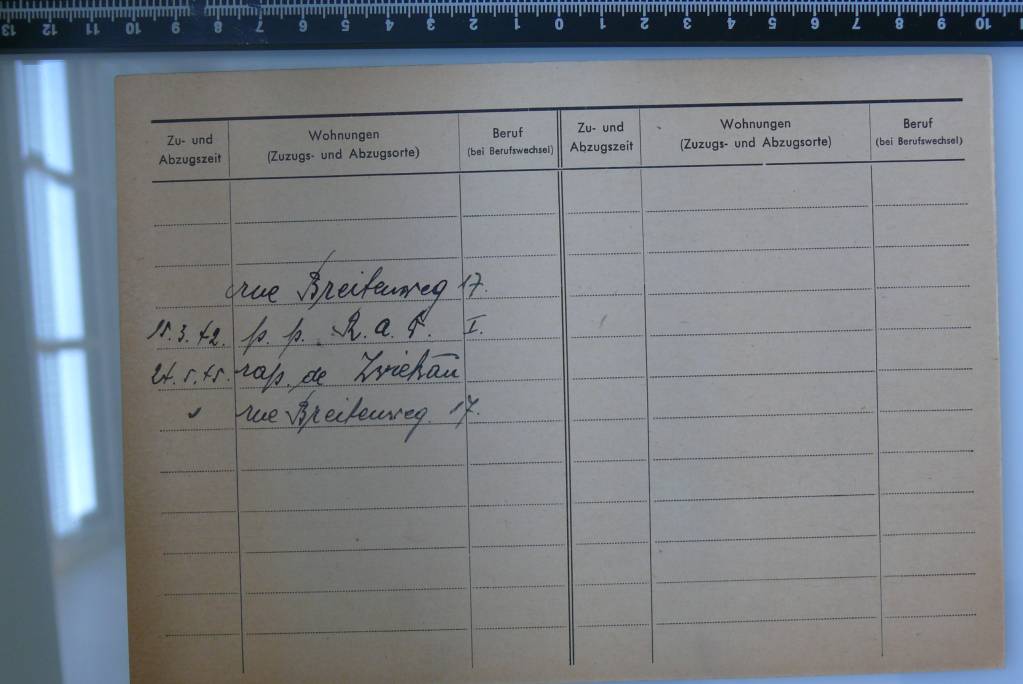 13 12 11 10 9 8 7 6 5 4 3 2 1 0 1 2 3 4 5 6 7 8 9 10
Zu- und Abzugszeit
Wohnungen (Zuzugs- und Abzugsorte)
Beruf (bei Berufswechsel)
Zu- und Abzugszeit
Wohnungen (Zuzugs- und Abzugsorte)
Beruf (bei Berufswechsel)
rue Breitenweg 17.
15.3.42. p. p. R. a. F. I.
24.5.45. rap. de Zwickau
" rue Breitenweg. 17.